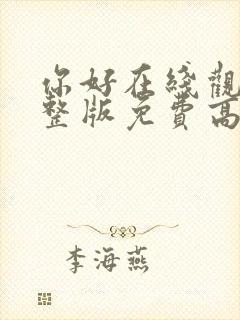 你好在綫觀
整版免費高
李海燕